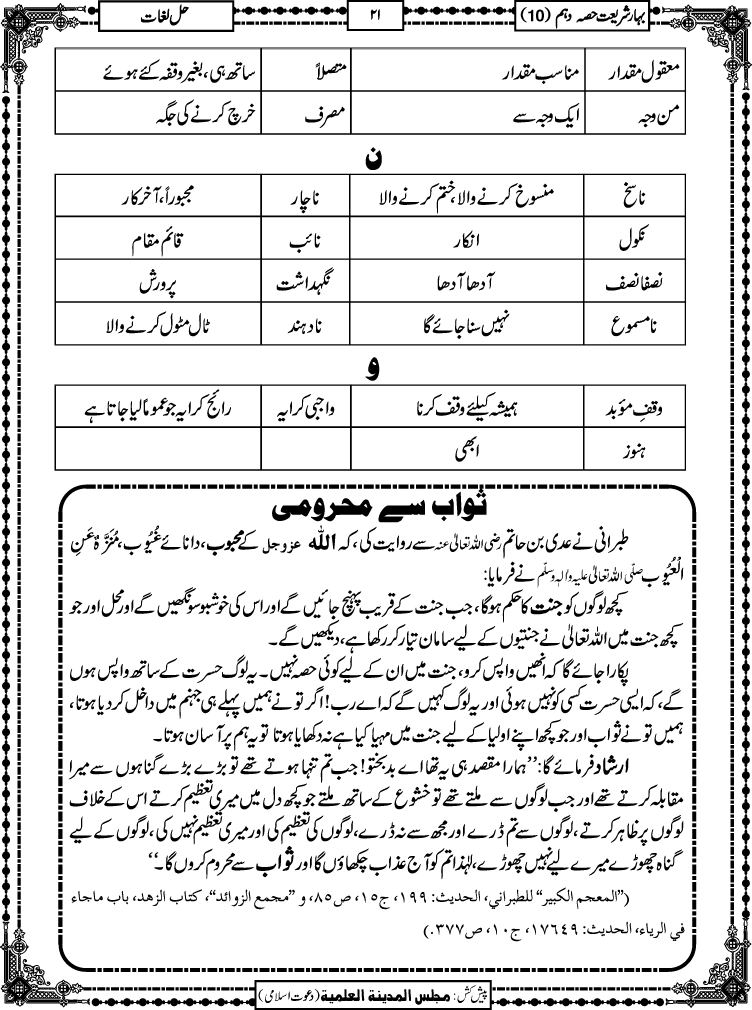 بہار شریعت حصہ دہم (10)
۲۱
حل لغات
معقول مقدار مناسب مقدار متصلاً ساتھ ہی، بغیر وقفہ کئے ہوئے
من وجہ ایک وجہ سے مصرف خرچ کرنے کی جگہ
ن
ناسخ منسوخ کرنے والا، ختم کرنے والا ناچار مجبوراً، آخرکار
نکول انکار نائب قائم مقام
نصفا نصف آدھا آدھا نگہداشت پرورش
نامسموع نہیں سنا جائے گا نادہند ٹال مٹول کرنے والا
و
وقفِ مؤبد ہمیشہ کیلئے وقف کرنا واجبی کرایہ رائج کرایہ جو عموماً لیا جاتا ہے
ہنوز ابھی
ثواب سے محرومی
طبرانی نے عدی بن حاتم رضی اللہ تعالیٰ عنہ سے روایت کی، کہ اللہ عزوجل کے محبوب، دانائے غُیُوب، مُنَزَّہٌ عَنِ
الْعُیُوب صلَّی اللہ تعالیٰ علیہ واٰلہٖ وسلَّم نے فرمایا:
کچھ لوگوں کو جنت کا حکم ہوگا، جب جنت کے قریب پہنچ جائیں گے اور اس کی خوشبو سونگھیں گے اور محل اور جو
کچھ جنت میں اللہ تعالیٰ نے جنتیوں کے لیے سامان تیار کر رکھا ہے، دیکھیں گے۔
پکارا جائے گا کہ انھیں واپس کرو، جنت میں ان کے لیے کوئی حصہ نہیں۔ یہ لوگ حسرت کے ساتھ واپس ہوں
گے، کہ ایسی حسرت کسی کو نہیں ہوئی اور یہ لوگ کہیں گے کہ اے رب! اگر تو نے ہمیں پہلے ہی جہنم میں داخل کر دیا ہوتا،
ہمیں تو نے ثواب اور جو کچھ اپنے اولیا کے لیے جنت میں مہیا کیا ہے نہ دکھایا ہوتا تو یہ ہم پر آسان ہوتا۔
ارشاد فرمائے گا: ’’ہمارا مقصد ہی یہ تھا اے بدبختو! جب تم تنہا ہوتے تھے تو بڑے بڑے گناہوں سے میرا
مقابلہ کرتے تھے اور جب لوگوں سے ملتے تھے تو خشوع کے ساتھ ملتے جو کچھ دل میں میری تعظیم کرتے اس کے خلاف
لوگوں پر ظاہر کرتے، لوگوں سے تم ڈرے اور مجھ سے نہ ڈرے، لوگوں کی تعظیم کی اور میری تعظیم نہیں کی، لوگوں کے لیے
گناہ چھوڑے میرے لیے نہیں چھوڑے، لہٰذا تم کو آج عذاب چکھاؤں گا اور ثواب سے محروم کروں گا۔‘‘
(’’المعجم الکبیر‘‘ للطبراني، الحدیث: ۱۹۹، ج۱۵، ص۸۵، و ’’مجمع الزوائد‘‘، کتاب الزھد، باب ماجاء
في الریاء، الحدیث: ۱۷۶۴۹، ج۱۰، ص۳۷۷.)
پیش کش: مجلس المدینۃ العلمیۃ (دعوت اسلامی)